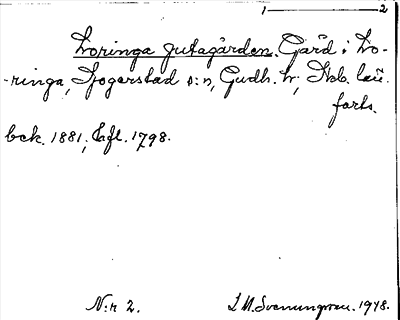 1 — 2
Loringa Jutagården. Gård i Lo-
-ringa, Sjogerstad s:n, Gudh. h; Skb. län.
forts.
bck. 1881; Eafl. 1798.
N:r 2. J M. Svenungsson. 1948.